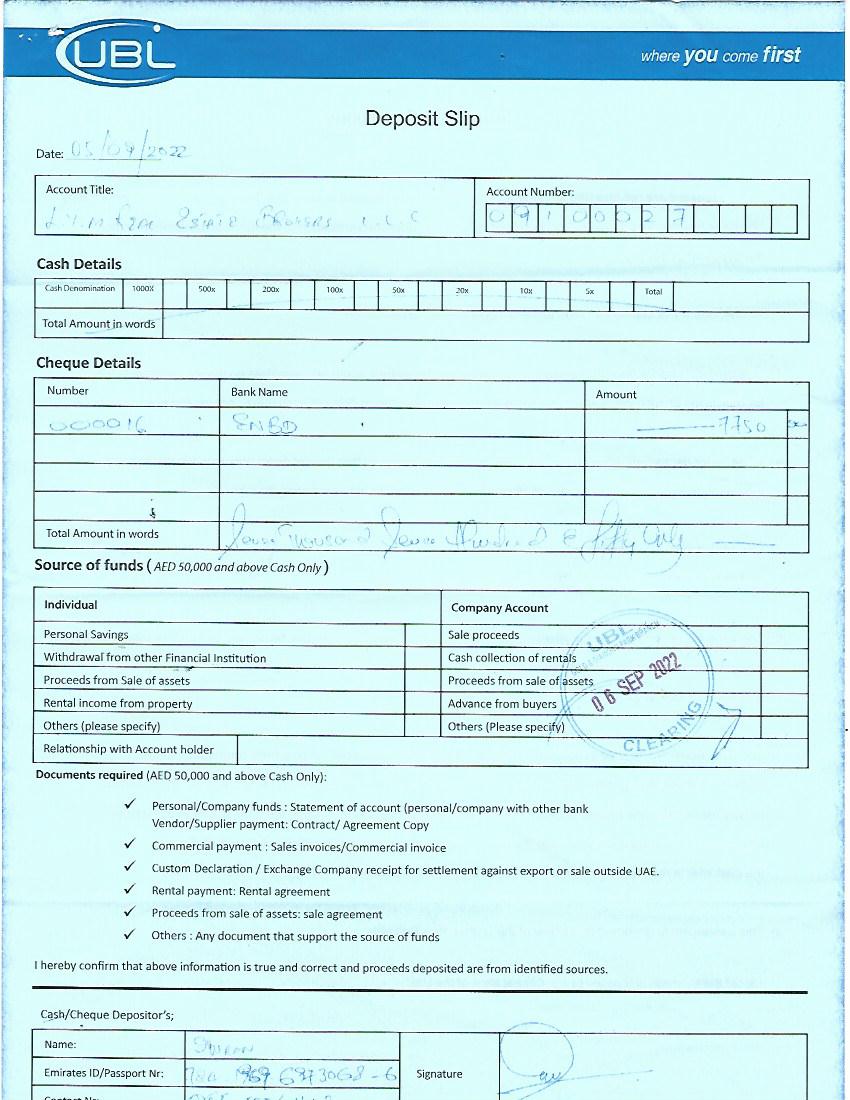 UBL
where you come first
Deposit Slip
Date: 05/09/2022
Account Title:
Account Number:
Estate Brokers L.L.C
09100027
Cash Details
Cash Denomination 1000X 500x 200x 100x 50x 20x 10x 5x Total
Total Amount in words
Cheque Details
Number Bank Name Amount
000016 ENBD 7750
Total Amount in words Seven Thousand Seven Hundred & Fifty Only
Source of funds ( AED 50,000 and above Cash Only )
Individual Company Account
Personal Savings Sale proceeds
Withdrawal from other Financial Institution Cash collection of rentals
Proceeds from Sale of assets Proceeds from sale of assets
Rental income from property Advance from buyers
Others (please specify) Others (Please specify)
Relationship with Account holder
UBL
06 SEP 2022
CLEARING
Documents required (AED 50,000 and above Cash Only):
✓ Personal/Company funds : Statement of account (personal/company with other bank
Vendor/Supplier payment: Contract/ Agreement Copy
✓ Commercial payment : Sales invoices/Commercial invoice
✓ Custom Declaration / Exchange Company receipt for settlement against export or sale outside UAE.
✓ Rental payment: Rental agreement
✓ Proceeds from sale of assets: sale agreement
✓ Others : Any document that support the source of funds
I hereby confirm that above information is true and correct and proceeds deposited are from identified sources.
Cash/Cheque Depositor's;
Name:
Emirates ID/Passport Nr: Signature